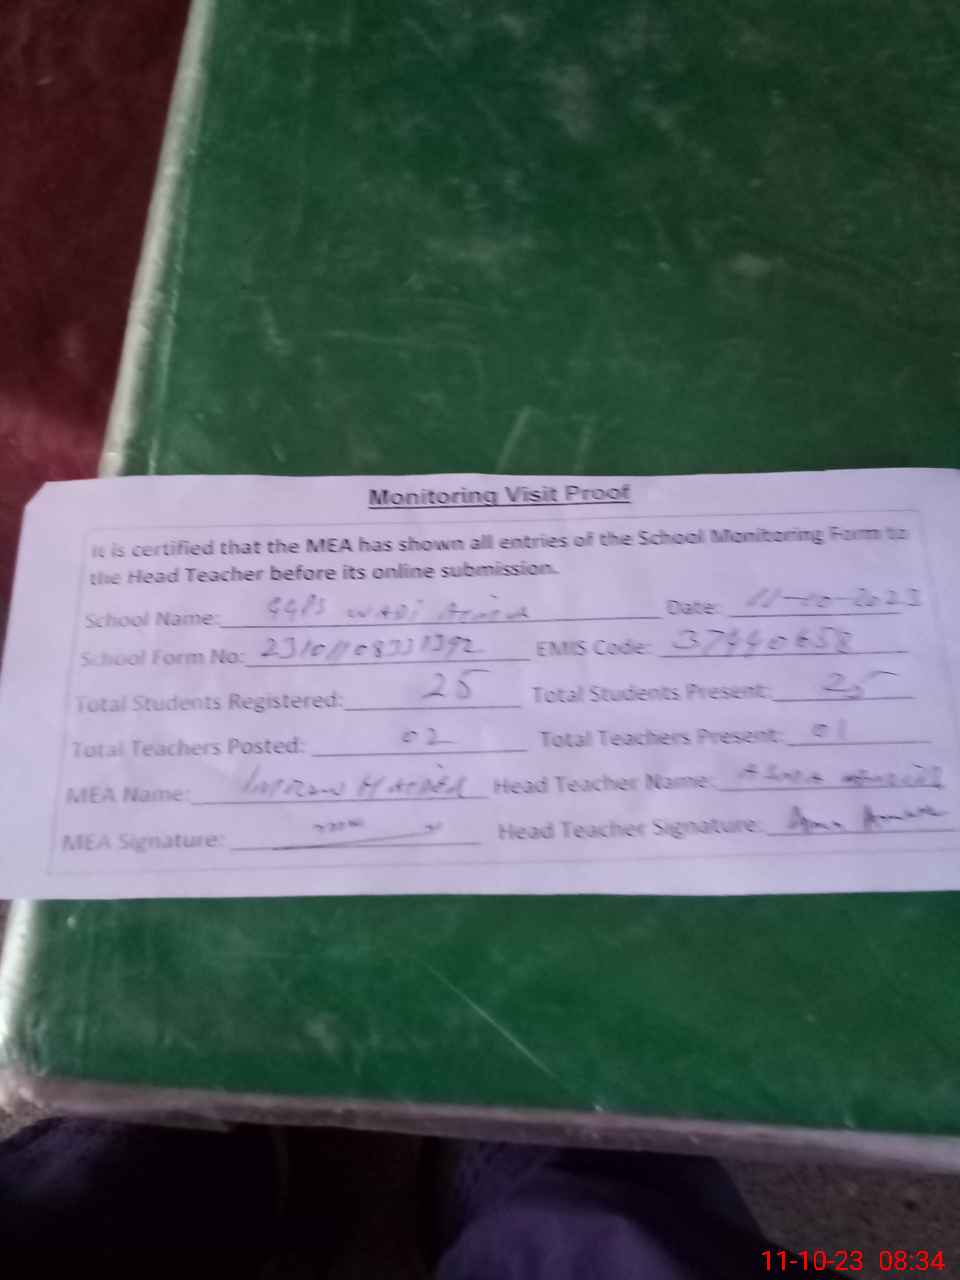 Monitoring Visit Proof
It is certified that the MEA has shown all entries of the School Monitoring Form to
the Head Teacher before its online submission.
School Name: GGPS WADI Date: 11-10-2023
School Form No: EMIS Code: 37440658
Total Students Registered: 25 Total Students Present: 25
Total Teachers Posted: 02 Total Teachers Present: 01
MEA Name: Head Teacher Name:
MEA Signature: Head Teacher Signature:
11-10-23 08:34